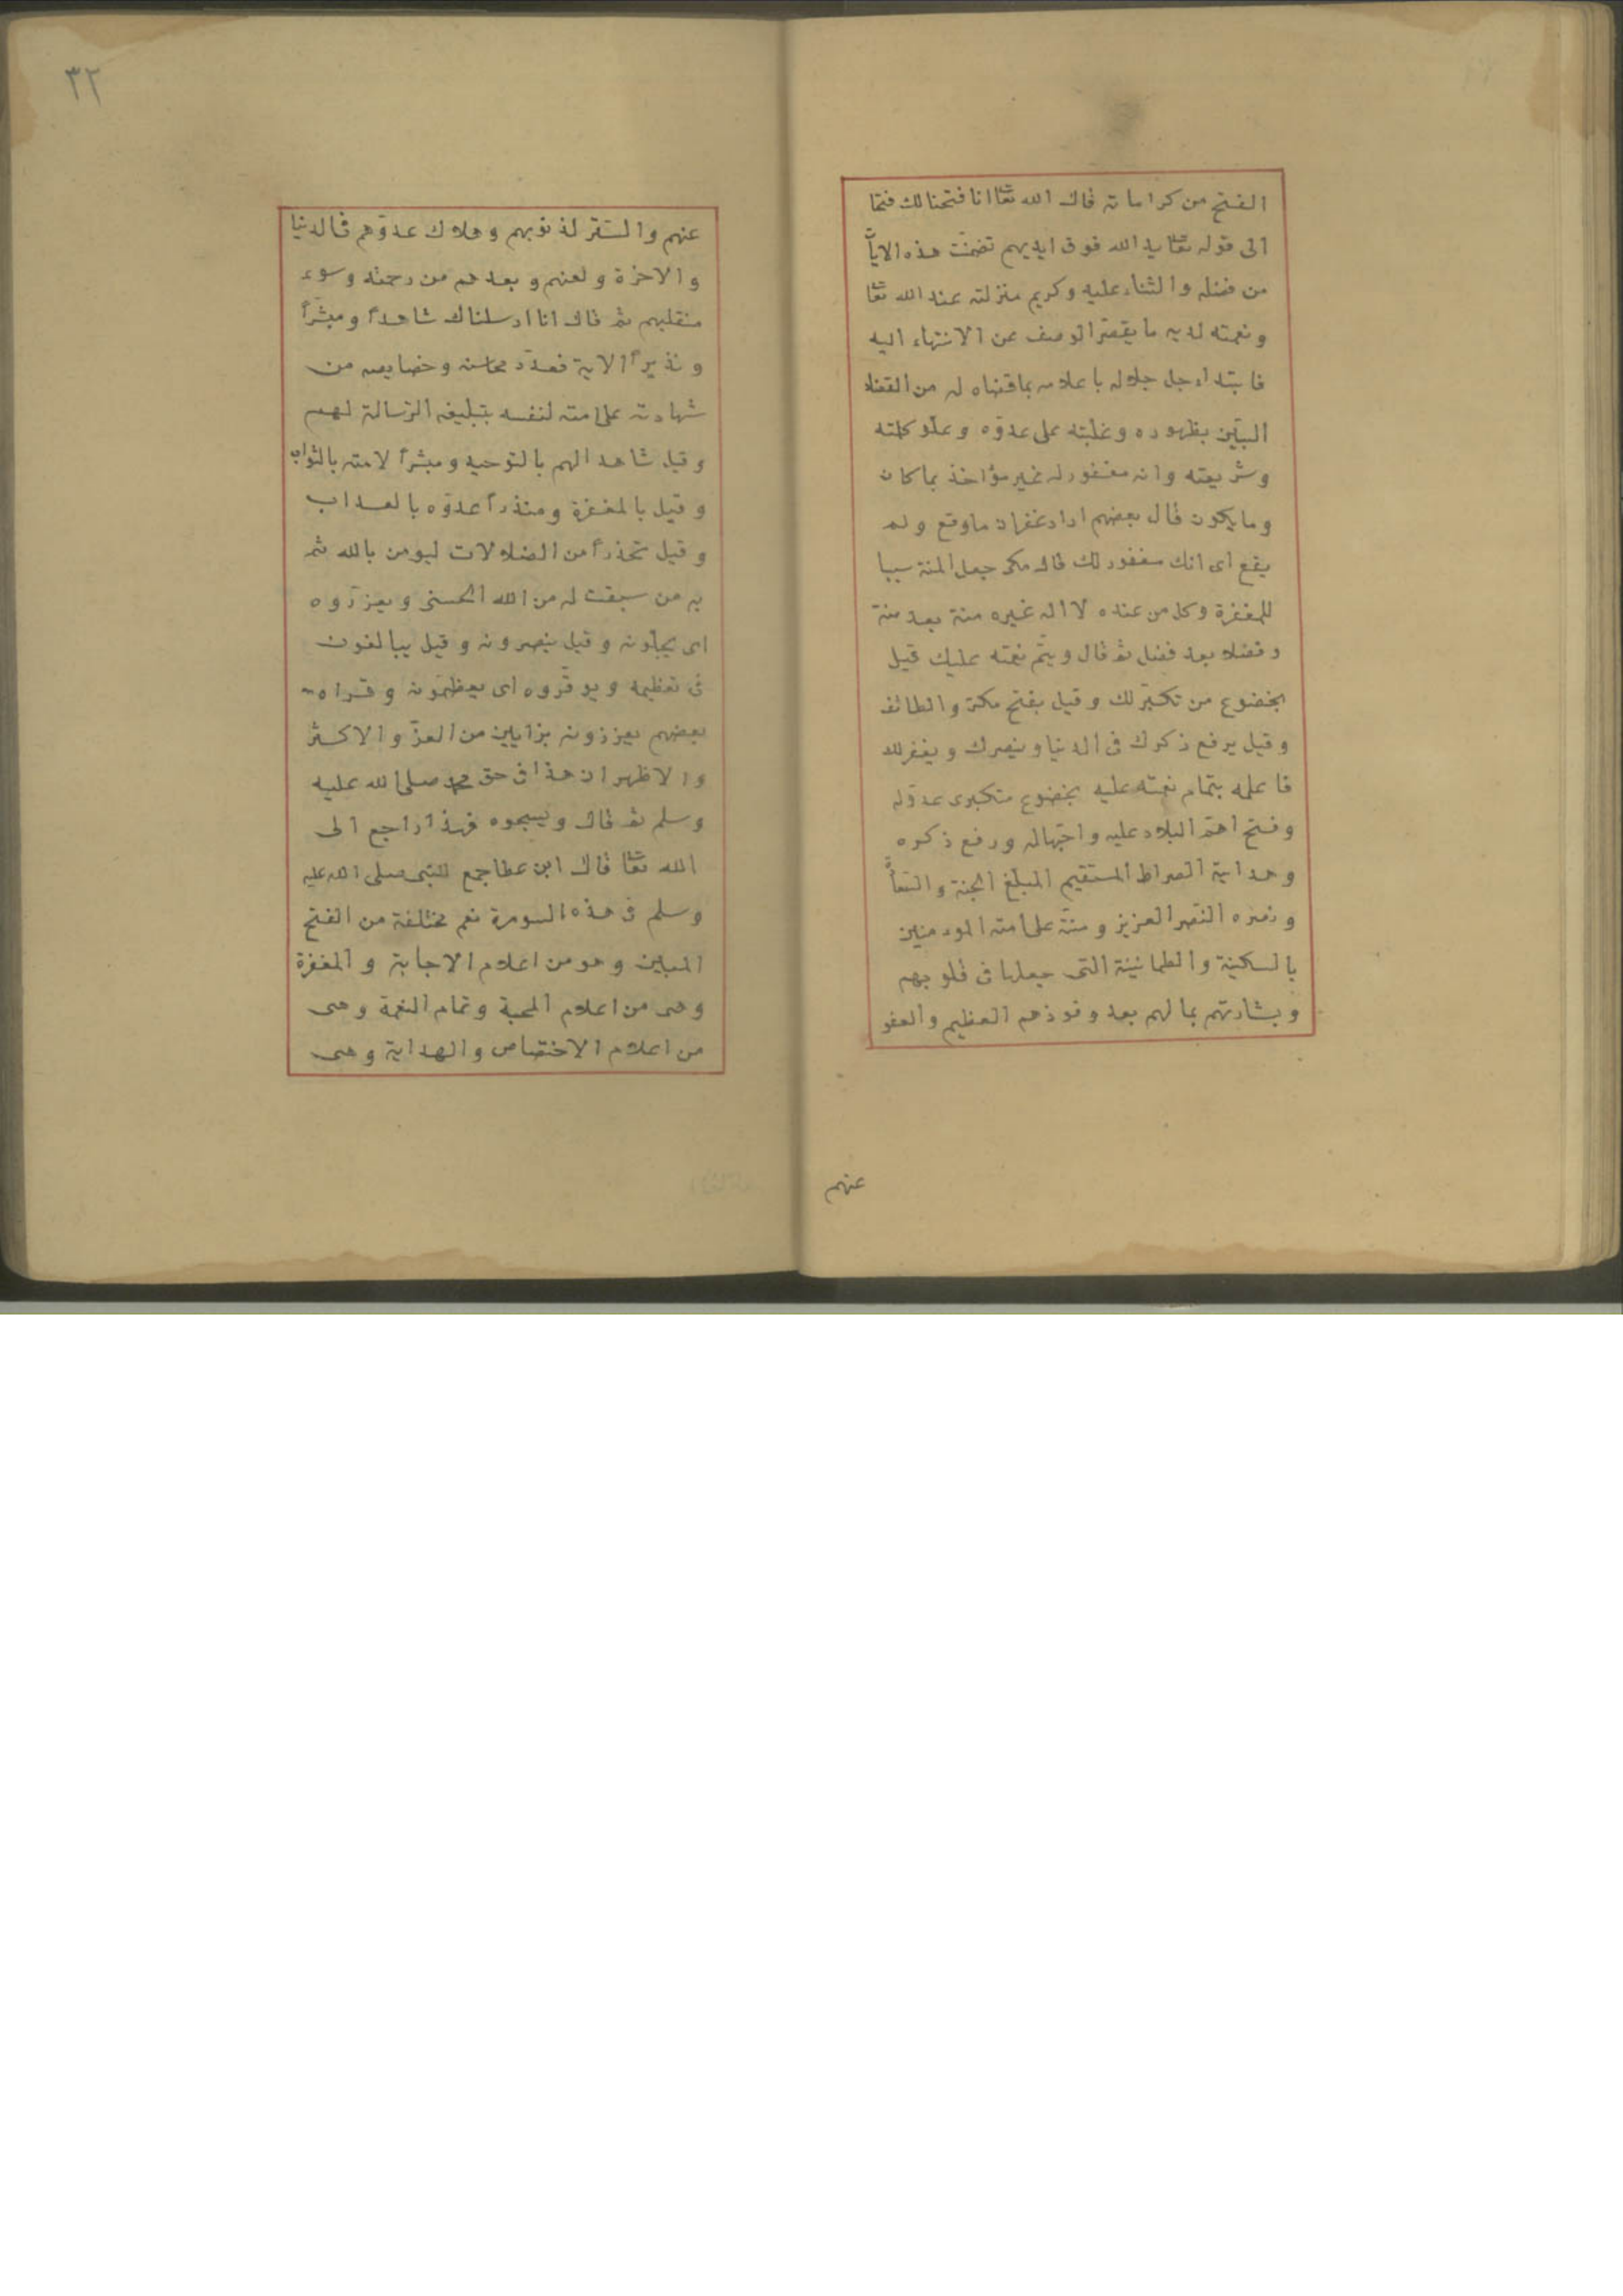 الفتح من كراماته قال الله تعا انا فتحنا لك فتحا
الى قوله تعا يد الله فوق ايديهم تضمنت هذه الايات
من فضله والثناء عليه وكريم منزلته عند الله تعا
ونعمته لديه ما يقصر الوصف عن الانتهاء اليه
فابتداء جل جلاله باعلامه بما قضاه له من القضاء
البيّن بظهوره وغلبته على عدوّه وعلو كلمته
وشريعته وانه مغفور له غير مؤاخذ بما كان
وما يكون قال بعضهم اراد غفران ما وقع ولم
يقع اى انك مغفور لك قال مكى جعل المنة سببا
للمغفرة وكل من عنده لا اله غيره منة بعد منة
وفضلا بعد فضل ثم قال ويتم نعمته عليك قيل
بخضوع من تكبّر لك وقيل بفتح مكة والطائف
وقيل يرفع ذكرك فى الدنيا وينصرك ويغفر لك
فاعلمه بتمام نعمته عليه بخضوع متكبرى عدوّه
وفتح اهمّ البلاد عليه واحبّها له ورفع ذكره
وهداية الصراط المستقيم المبلّغ الجنة والسّعادة
ونصره النّصر العزيز ومنّته على امته المؤمنين
بالسكينة والطمانينة التى جعلها فى قلوبهم
وبشارتهم بما لهم بعد وفوزهم العظيم والعفو
عنهم
٣٢
عنهم والسّتر لذنوبهم وهلاك عدوّهم فى الدنيا
والاخرة ولعنهم وبعدهم من رحمته وسوء
منقلبهم ثم قال انا ارسلناك شاهداً ومبشّراً
ونذيراً الاية فعدّد محاسنه وخصايصه من
شهادته على امته لنفسه بتبليغه الرّسالة لهم
وقيل شاهدا لهم بالتوحيد ومبشراً لامته بالثواب
وقيل بالمغفرة ومنذراً عدوّه بالعذاب
وقيل محذراً من الضلالات ليومن بالله ثم
به من سبقت له من الله الحسنى ويعزّروه
اى يجلّونه وقيل ينصرونه وقيل يبالغون
فى تعظيمه ويوقّروه اى يعظمّونه وقراه
بعضهم يعززونه بزايين من العزّ والاكثر
والاظهر ان هذا فى حق محمد صلى الله عليه
وسلم ثم قال ويسبحوه فهذا راجع الى
الله تعا قال ابن عطا جمع للنبى صلى الله عليه
وسلم فى هذه السورة نعم مختلفة من الفتح
المبين وهو من اعلام الاجابة والمغفرة
وهى من اعلام المحبة وتمام النعمة وهى
من اعلام الاختصاص والهداية وهى